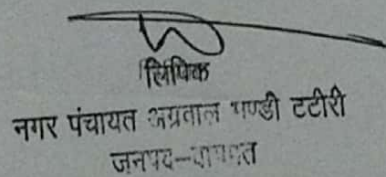 लिपिक
नगर पंचायत अग्रवाल मण्डी टटीरी
जनपद-बागपत